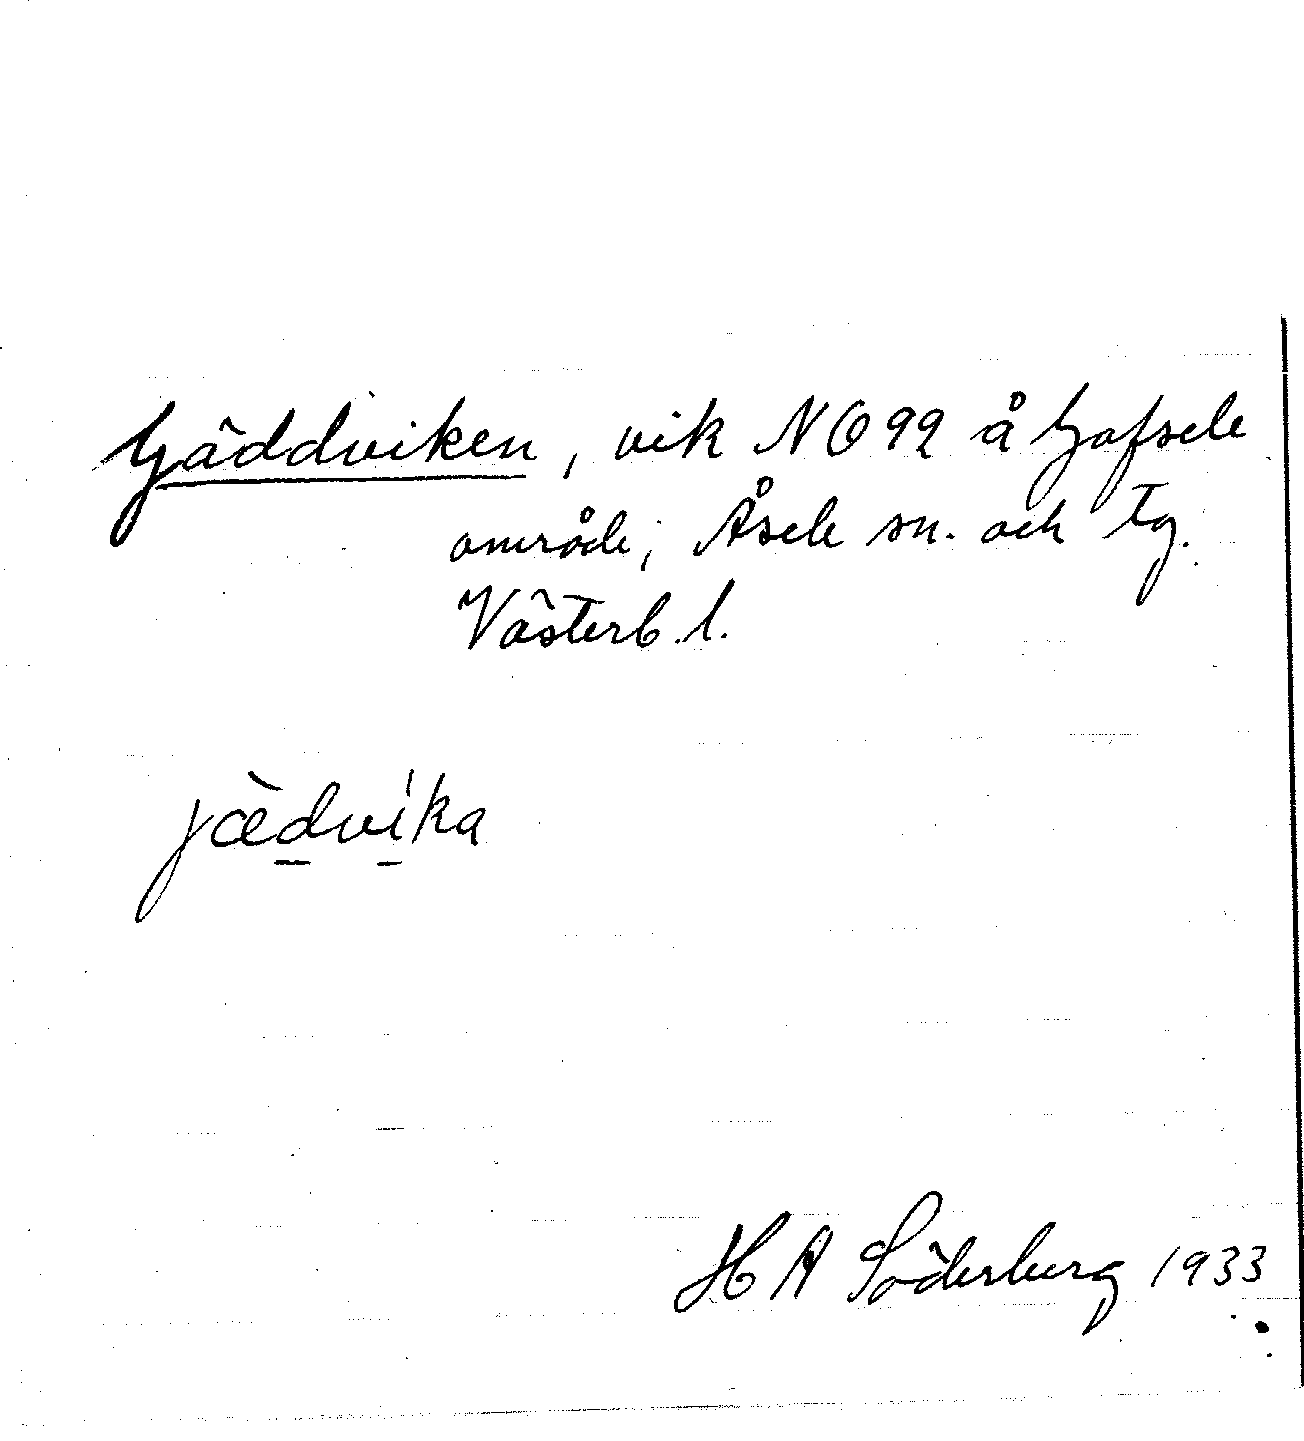 Gäddviken, vik NO 99 å Gafsele
område, Åsele sn. och tg.
Västerb. l.
jæ̀dvíka
H A Söderberg 1933